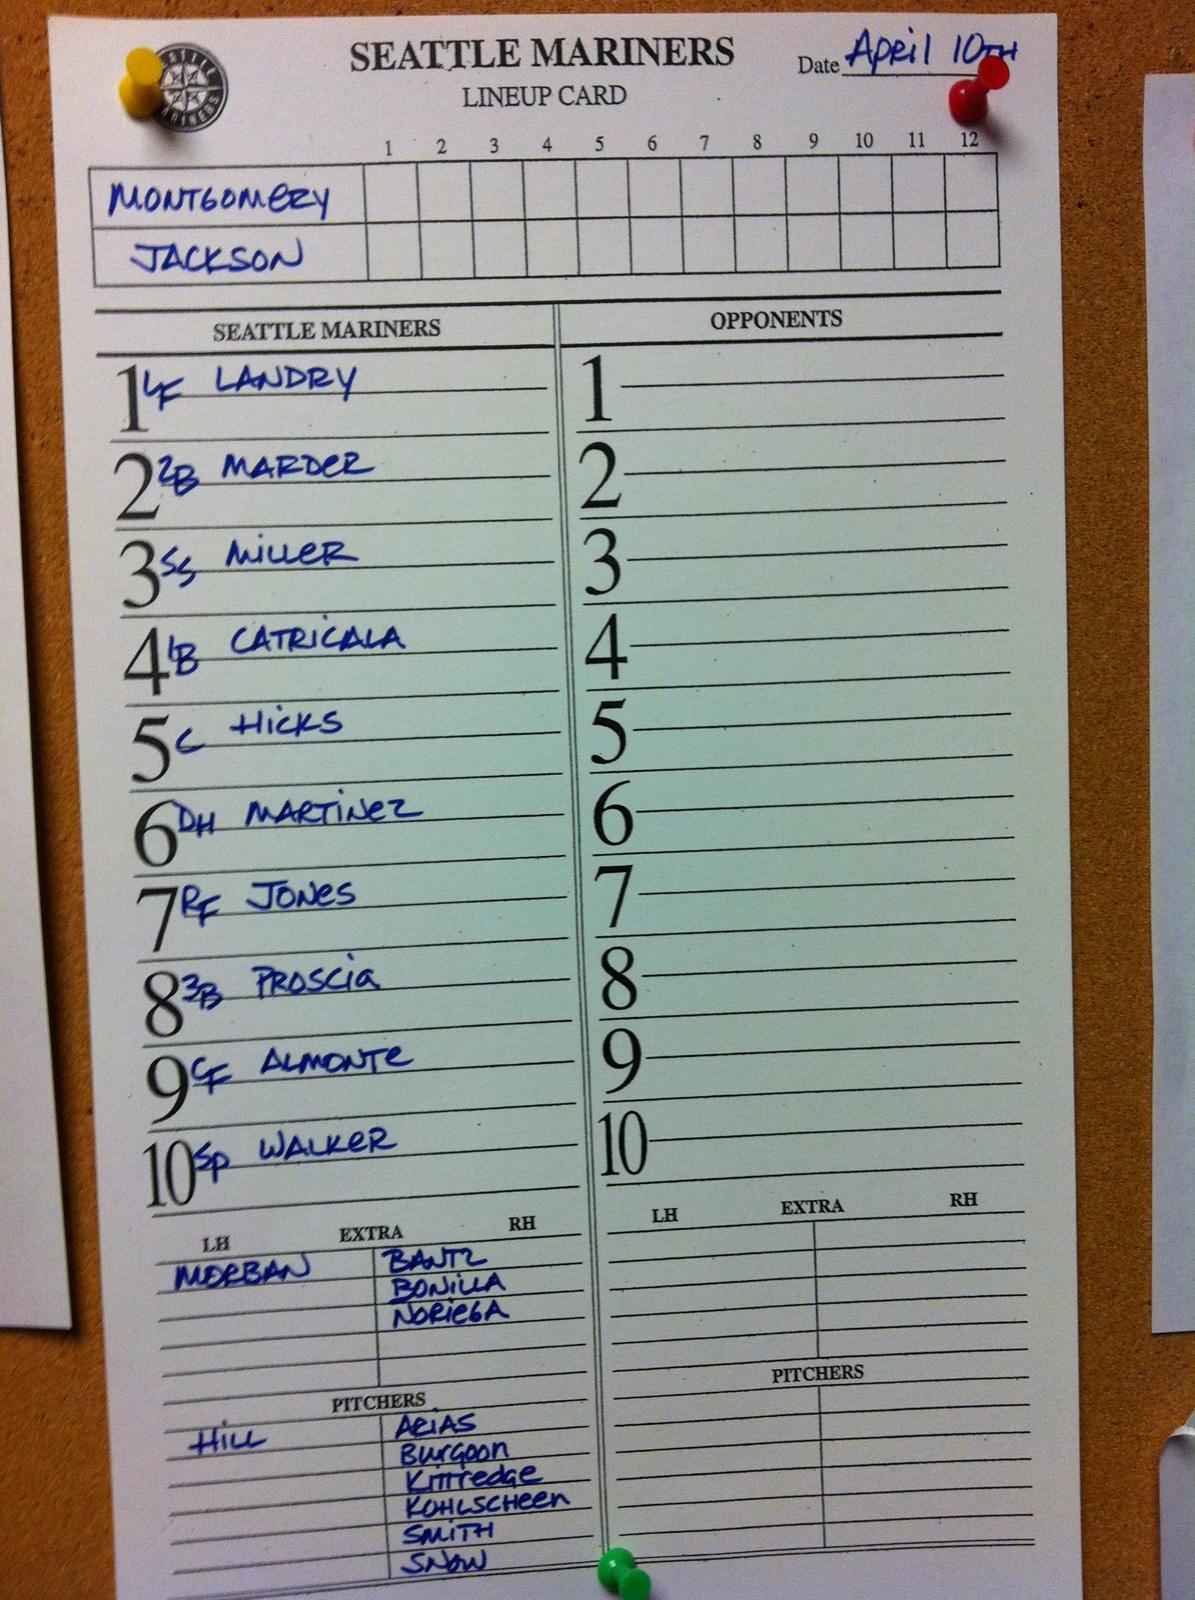 SEATTLE MARINERS
LINEUP CARD
Date April 10TH
1 2 3 4 5 6 7 8 9 10 11 12
MONTGOMERY
JACKSON
SEATTLE MARINERS
1 LF LANDRY
2 2B MARDER
3 SS MILLER
4 1B CATRICALA
5 C HICKS
6 DH MARTINEZ
7 RF JONES
8 3B PROSCIA
9 CF ALMONTE
10 SP WALKER
LH EXTRA RH
MORBAN BANTZ
BONILLA
NORIEGA
PITCHERS
HILL ARIAS
Burgoon
Kittredge
KOHLSCHEEN
SMITH
SNOW
OPPONENTS
1
2
3
4
5
6
7
8
9
10
LH EXTRA RH
PITCHERS